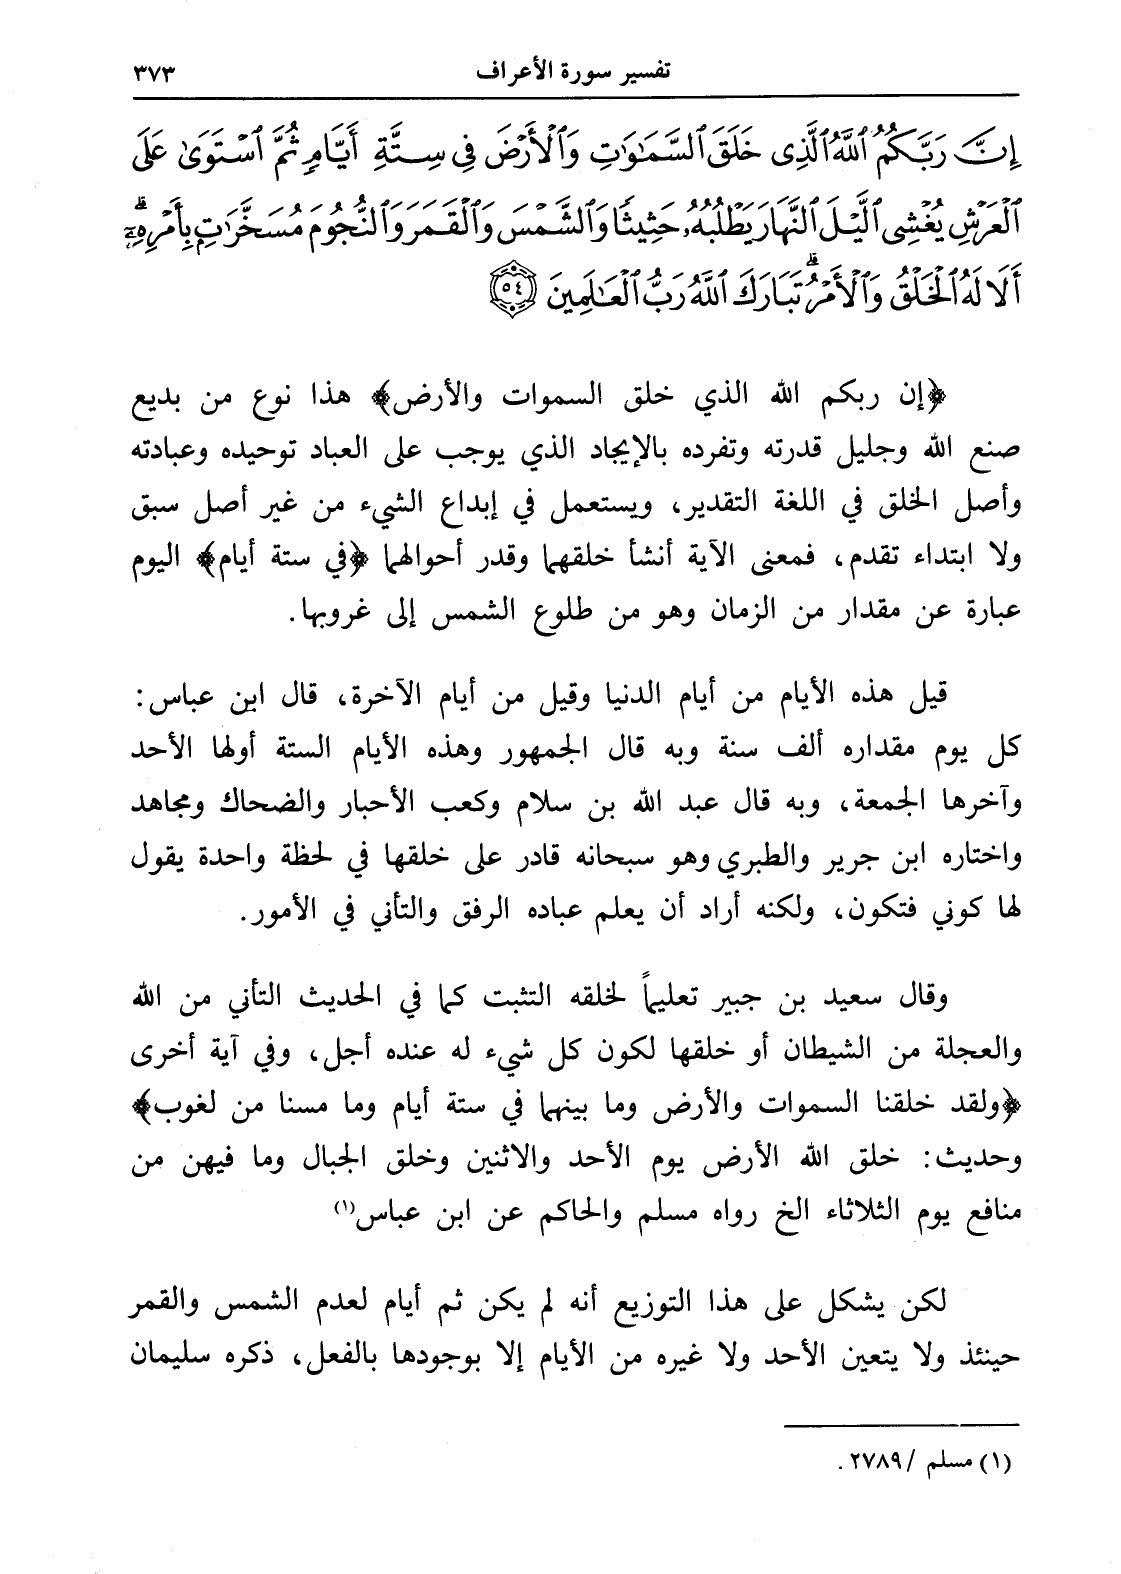 تفسير سورة الأعراف ٣٧٣
إِنَّ رَبَّكُمُ ٱللَّهُ ٱلَّذِى خَلَقَ ٱلسَّمَٰوَٰتِ وَٱلْأَرْضَ فِى سِتَّةِ أَيَّامٍ ثُمَّ ٱسْتَوَىٰ عَلَى
ٱلْعَرْشِ يُغْشِى ٱلَّيْلَ ٱلنَّهَارَ يَطْلُبُهُۥ حَثِيثًا وَٱلشَّمْسَ وَٱلْقَمَرَ وَٱلنُّجُومَ مُسَخَّرَٰتٍۭ بِأَمْرِهِۦٓ ۗ
أَلَا لَهُ ٱلْخَلْقُ وَٱلْأَمْرُ ۗ تَبَارَكَ ٱللَّهُ رَبُّ ٱلْعَٰلَمِينَ ٥٤
﴿إن ربكم الله الذي خلق السموات والأرض﴾ هذا نوع من بديع
صنع الله وجليل قدرته وتفرده بالإيجاد الذي يوجب على العباد توحيده وعبادته
وأصل الخلق في اللغة التقدير، ويستعمل في إبداع الشيء من غير أصل سبق
ولا ابتداء تقدم، فمعنى الآية أنشأ خلقهما وقدر أحوالهما ﴿في ستة أيام﴾ اليوم
عبارة عن مقدار من الزمان وهو من طلوع الشمس إلى غروبها.
قيل هذه الأيام من أيام الدنيا وقيل من أيام الآخرة، قال ابن عباس:
كل يوم مقداره ألف سنة وبه قال الجمهور وهذه الأيام الستة أولها الأحد
وآخرها الجمعة، وبه قال عبد الله بن سلام وكعب الأحبار والضحاك ومجاهد
واختاره ابن جرير والطبري وهو سبحانه قادر على خلقها في لحظة واحدة يقول
لها كوني فتكون، ولكنه أراد أن يعلم عباده الرفق والتأني في الأمور.
وقال سعيد بن جبير تعليماً لخلقه التثبت كما في الحديث التأني من الله
والعجلة من الشيطان أو خلقها لكون كل شيء له عنده أجل، وفي آية أخرى
﴿ولقد خلقنا السموات والأرض وما بينهما في ستة أيام وما مسنا من لغوب﴾
وحديث: خلق الله الأرض يوم الأحد والاثنين وخلق الجبال وما فيهن من
منافع يوم الثلاثاء الخ رواه مسلم والحاكم عن ابن عباس(١)
لكن يشكل على هذا التوزيع أنه لم يكن ثم أيام لعدم الشمس والقمر
حينئذ ولا يتعين الأحد ولا غيره من الأيام إلا بوجودها بالفعل، ذكره سليمان
(١) مسلم /٢٧٨٩.